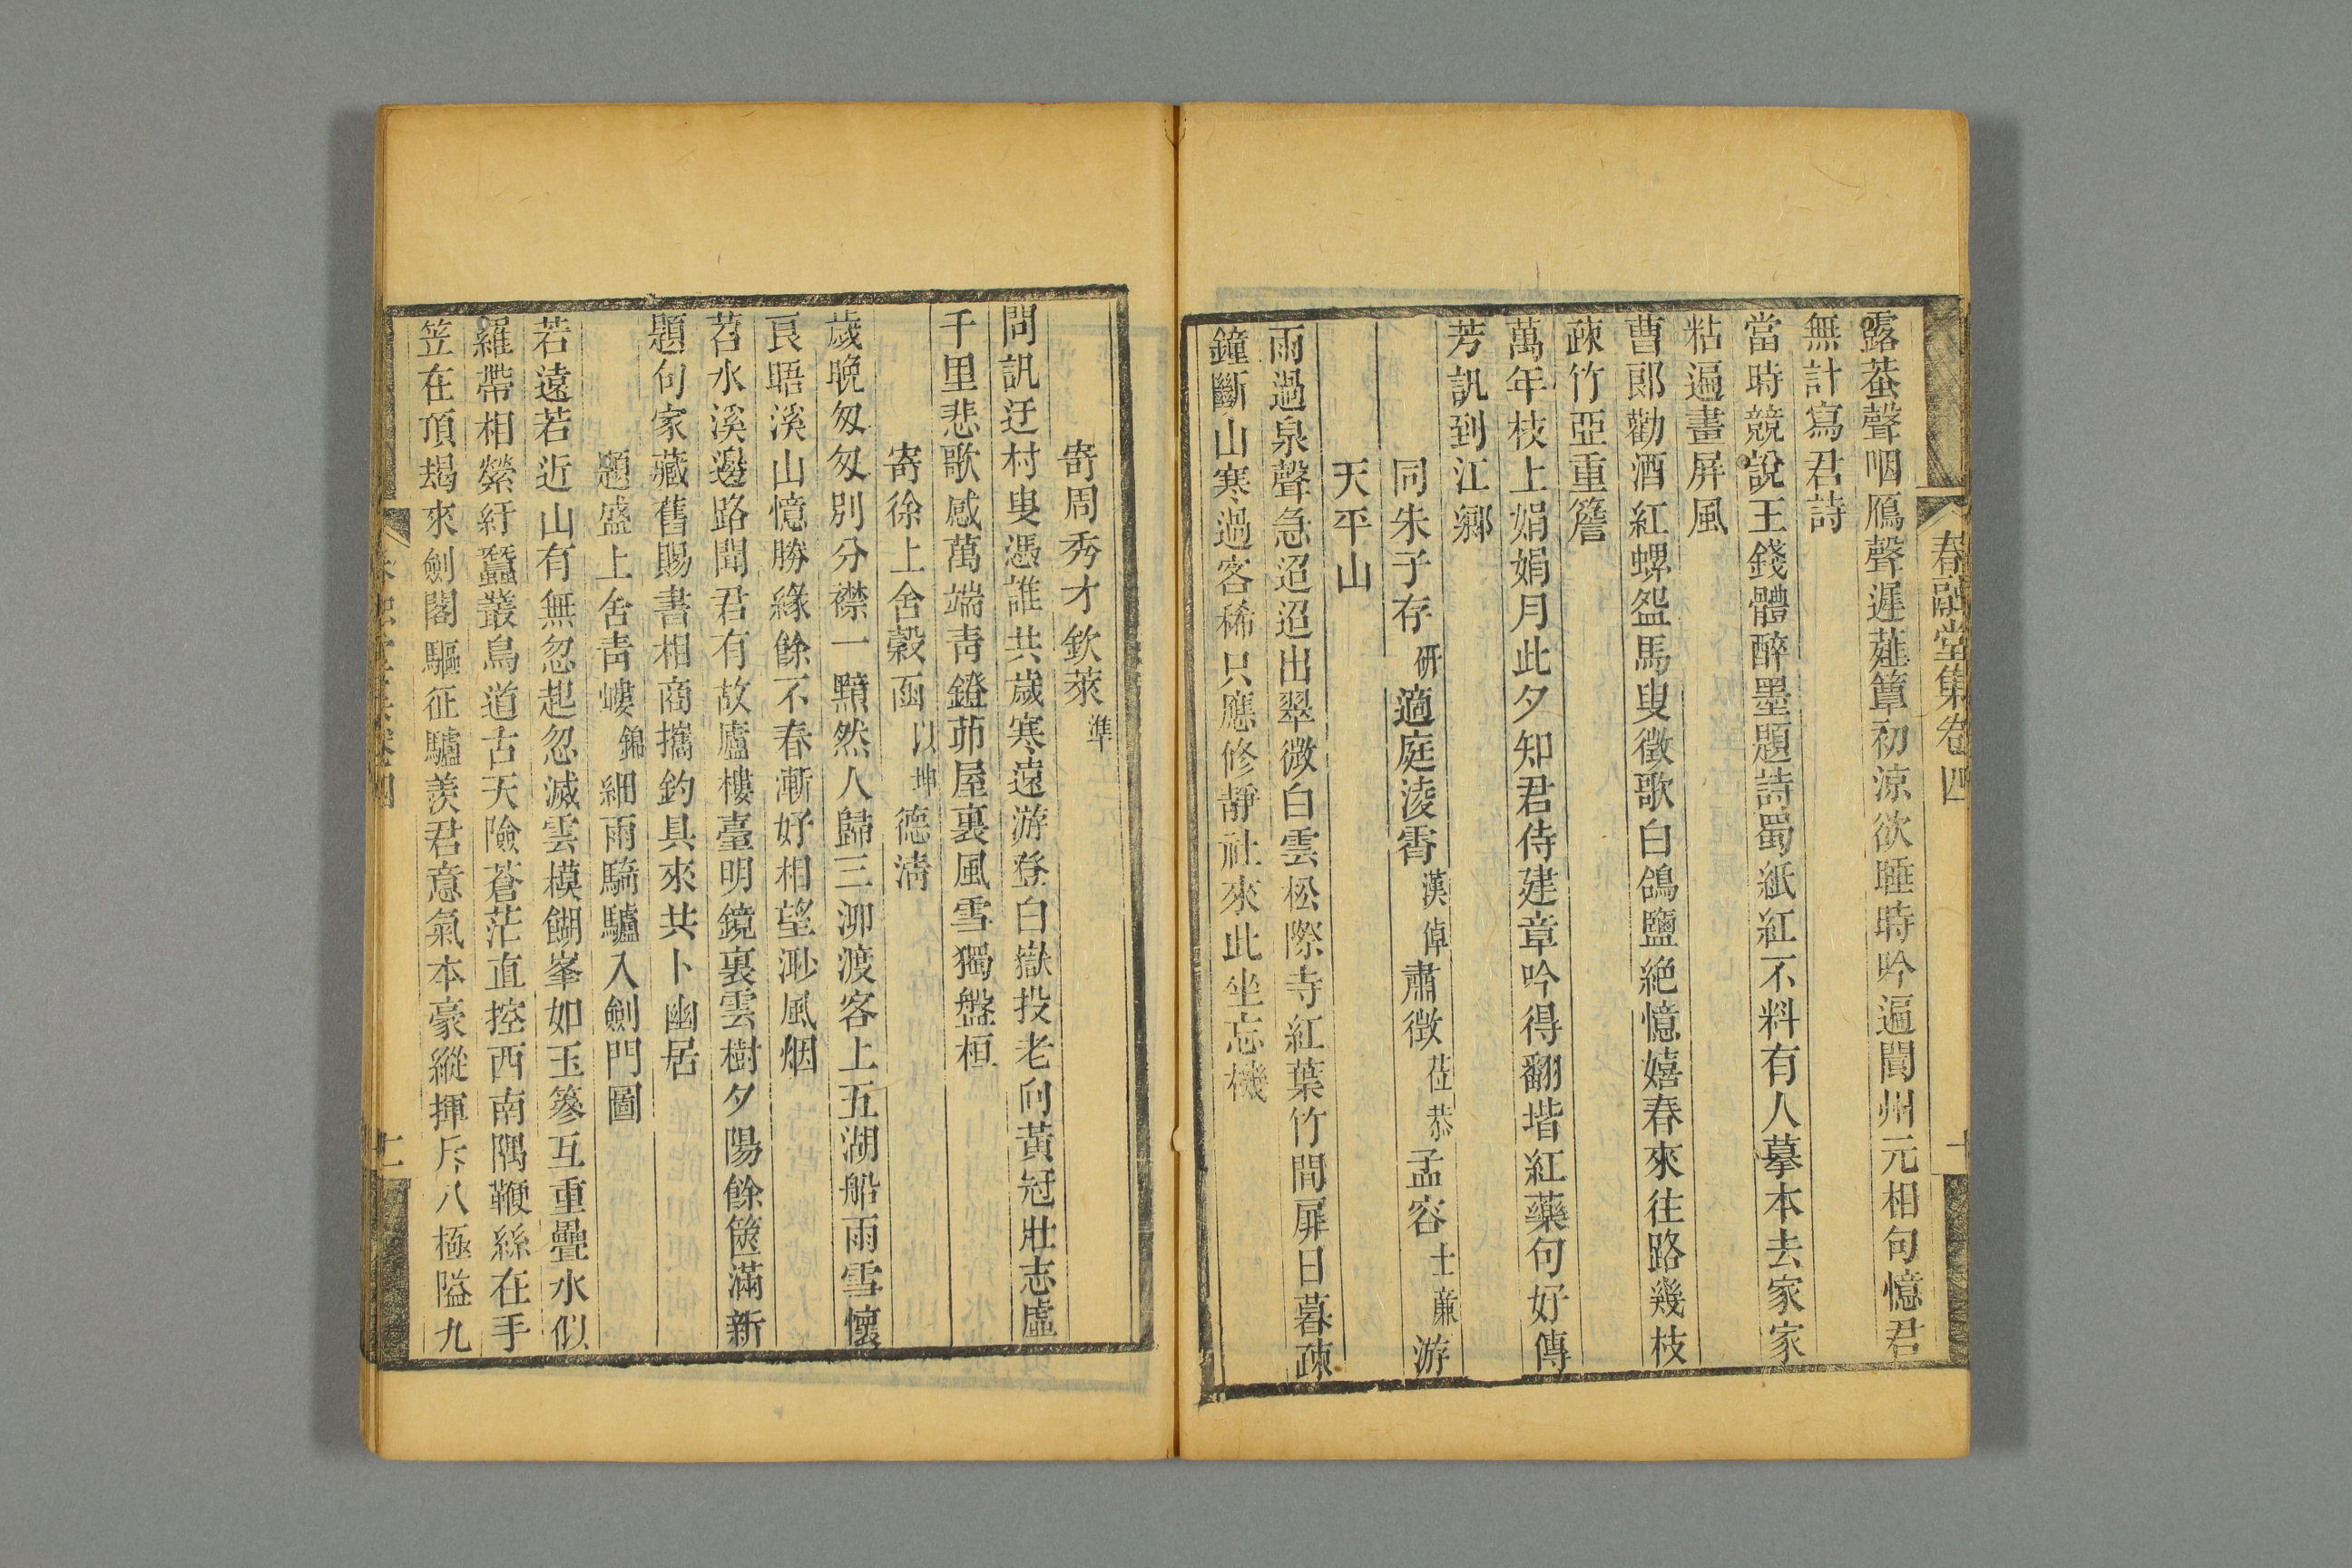 春融堂集卷四
露蛬聲咽鴈聲遲薤簟初涼欲睡時吟遍閬州元相句憶君
無計寫君詩
當時競說王錢體醉墨題詩蜀紙紅不料有人摹本去家家
粘遍畫屏風
曹郎勸酒紅螺盌馬叟徵歌白鴿鹽絶憶嬉春來往路幾枝
疎竹亞重簷
萬年枝上娟娟月此夕知君侍建章吟得翻堦紅藥句好傳
芳訊到江鄉
同朱子存研適庭淩霄漢倬肅徴莅恭孟容士蒹游
天平山
雨過泉聲急迢迢出翠微白雲松際寺紅葉竹間扉日暮疎
鐘斷山寒過客稀只應修靜社來此坐忘機
寄周秀才欽萊準
問訊迂村叟憑誰共歲寒遠游登白嶽投老向黃冠壯志虛
千里悲歌感萬端靑鐙茆屋裏風雪獨盤桓
寄徐上舍穀函以坤德淸
歲晚匆匆別分襟一黯然人歸三泖渡客上五湖船雨雪懷
良晤溪山憶勝緣餘不春漸好相望渺風烟
苕水溪邊路聞君有故廬樓臺明鏡裏雲樹夕陽餘篋滿新
題句家藏舊賜書相商攜釣具來共卜幽居
題盛上舍靑嶁錦細雨騎驢入劍門圖
若遠若近山有無忽起忽滅雲模餬峯如玉篸互重疊水似
羅帶相縈紆蠶叢鳥道古天險蒼茫直控西南隅鞭絲在手
笠在頂朅來劍閣驅征驢羨君意氣本豪縱揮斥八極隘九